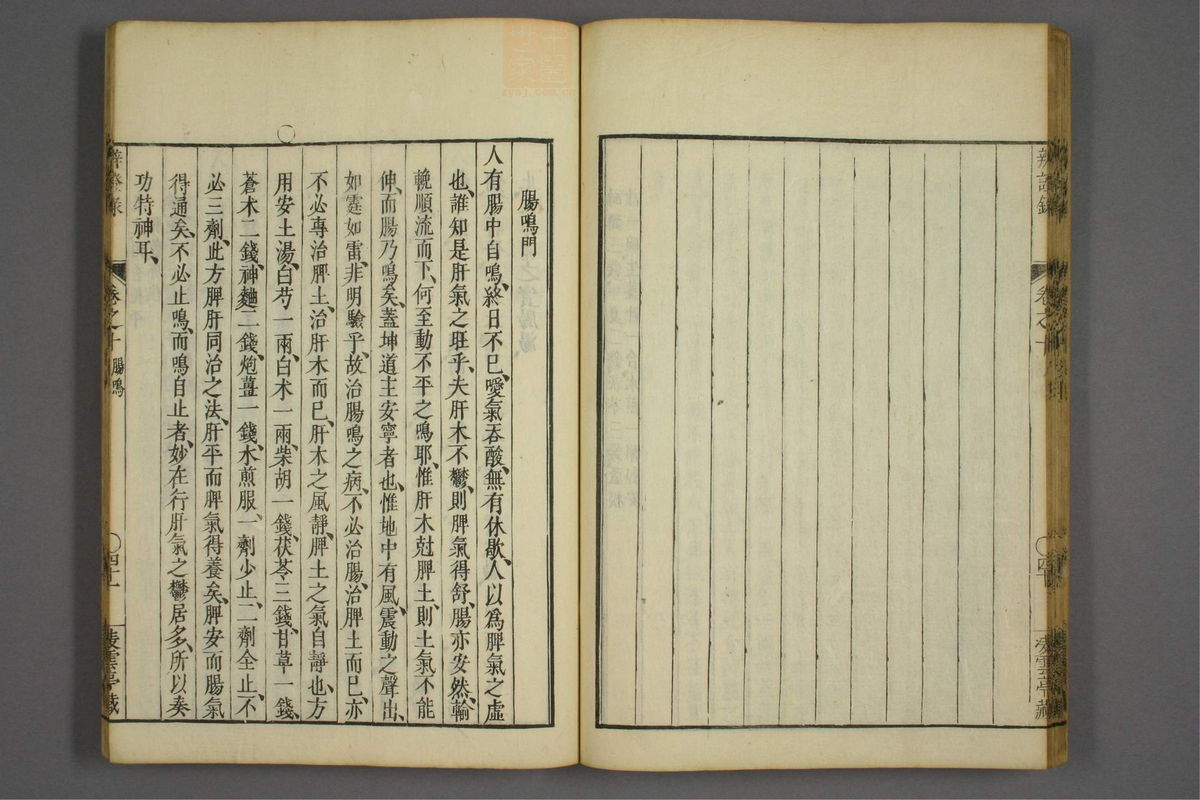 辨證錄
卷之十
凌雲亭藏
腸鳴門
人有腸中自鳴、終日不已、噯氣吞酸、無有休歇、人以爲脾氣之虛
也、誰知是肝氣之旺乎、夫肝木不鬱、則脾氣得舒、腸亦安然、輸
輓順流而下、何至動不平之鳴耶、惟肝木尅脾土、則土氣不能
伸、而腸乃鳴矣、蓋坤道主安寧者也、惟地中有風、震動之聲出、
如霆如雷、非明驗乎、故治腸鳴之病、不必治腸、治脾土而已、亦
不必專治脾土、治肝木而已、肝木之風靜、脾土之氣自靜也、方
〇
用安土湯、白芍一兩、白朮一兩、柴胡一錢、茯苓三錢、甘草一錢、
蒼朮二錢、神麯二錢、炮薑一錢、水煎服、一劑少止、二劑全止、不
必三劑、此方脾肝同治之法、肝平而脾氣得養矣、脾安而腸氣
得通矣、不必止鳴、而鳴自止者、妙在行肝氣之鬱居多、所以奏
功特神耳、
辨證錄
卷之十
腸鳴
〇四十一
凌雲亭藏